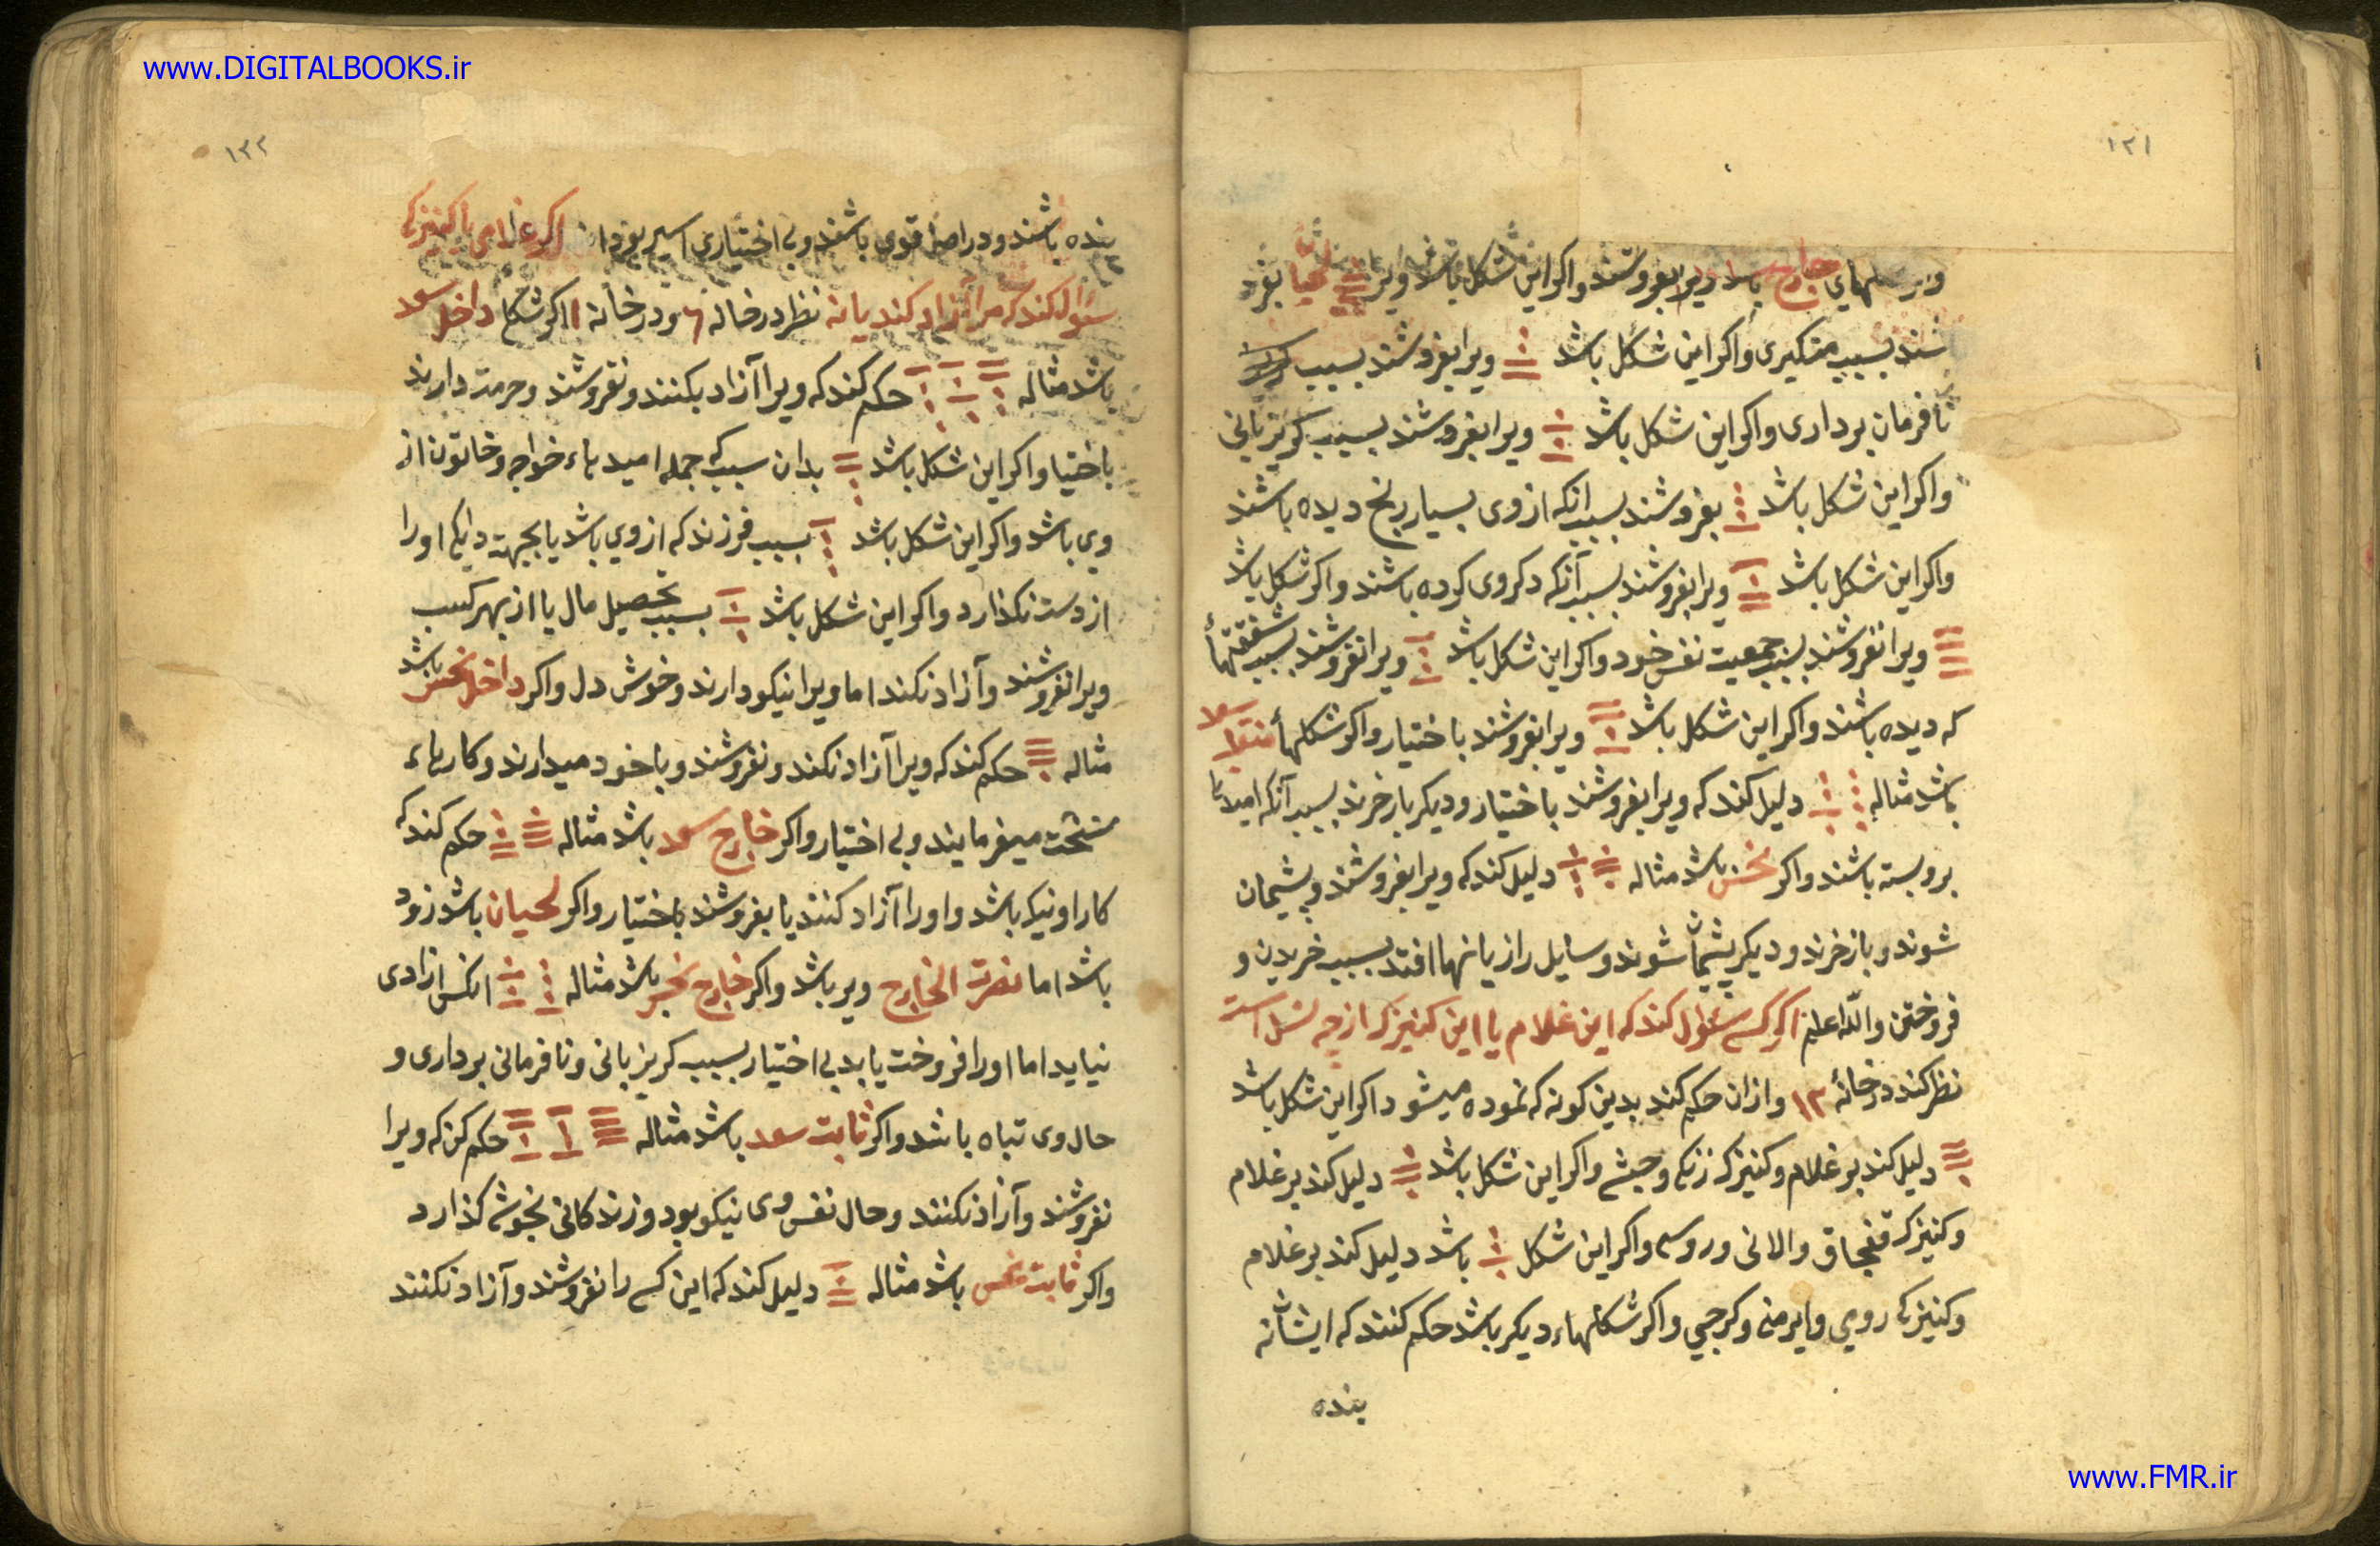 www.DIGITALBOOKS.ir
۱۲۱
واکر این شکل باشد ویرا لحیا بفرو
شند بسبب متکبری واکر این شکل باشد ویرا بفروشند بسبب
نافرمان برداری واکر این شکل باشد ویرا بفروشند بسبب کریز بانی
واکر این شکل باشد بفروشند بسبب انکه از وی بسیار رنج دیده باشند
واکر این شکل باشد ویرا بفروشند بسبب آنکه دکروی کرده باشند واکر شکل باشد
ویرا نفروشند بسبب جمعیت نفس خود واکر این شکل باشد ویرا نفروشند بسبب شفقتها
که دیده باشند واکر این شکل باشد ویرا بفروشند باختیار واکر شکلها منقلب سعد
باشد مثاله دلیل کند که ویرا بفروشند باختیار ودیکر باز خرند بسبب آنکه امیدها
بروبسته باشند واکر نحس باشد مثاله دلیل کند که ویرا بفروشند وپشیمان
شوند وباز خرند ودیکر پشیمان شوند وسایل را زیانها افتد بسبب خریدن و
فروختن والله اعلم اکر کسی سئوال کند که این غلام یا این کنیزک از چه نسل است
نظر کند در خانهٔ ۱۲ وازان حکم کند بدین کونه که نموده میشود اکر این شکل باشد
دلیل کند بر غلام وکنیزک زنکی وحبشی واکر این شکل باشد دلیل کند بر غلام
وکنیزک قفجاق والانی وروسی واکر این شکل باشد دلیل کند بر غلام
وکنیزکی رومی وایرمنی وکرجی واکر شکلهاء دیکر باشد حکم کنند که ایشان نه
بنده
۱۲۲
بنده باشند ودر اصل قوی باشند وبی اختیاری اسیر بوده اند اکر غلامی یا کنیزکی
سئوال کند که مرا آزاد کند یا نه نظر در خانه ۶ ودر خانه ۱ اکر شکل داخل سعد
باشد مثاله حکم کند که ویرا آزاد بکنند ونفروشند وحرمت دارند
باختیار واکر این شکل باشد بدان سبب که جمله امیدهاء خواجه وخاتون از
وی باشد واکر این شکل باشد بسبب فرزند که از وی باشد یا بجهت دایکی اورا
از دست نکذارد واکر این شکل باشد بسبب تحصیل مال یا از بهر کسب
ویرا نفروشند وآزاد نکنند اما ویرا نیکو دارند وخوش دل واکر داخل نحس باشد
مثاله حکم کند که ویرا آزاد نکند ونفروشند وبا خود میدارند وکارهاء
سخت میفرمایند وبی اختیار واکر خارج سعد باشد مثاله حکم کند که
کار او نیک باشد واورا آزاد کنند یا بفروشند باختیار واکر لحیان باشد زود
باشد اما نصرت الخارج دیر باشد واکر خارج نحس باشد مثاله انکس ازادی
نیابد اما اورا فروخت یابد بی اختیار بسبب کریز بانی ونافرمانی برداری و
حال وی تباه باشد واکر ثابت سعد باشد مثاله حکم کن که ویرا
نفروشند وآزاد نکنند وحال نفس وی نیکو بود وزندکانی بخوشی کذارد
واکر ثابت نحس باشد مثاله دلیل کند که این کس را نفروشند وآزاد نکنند
www.FMR.ir